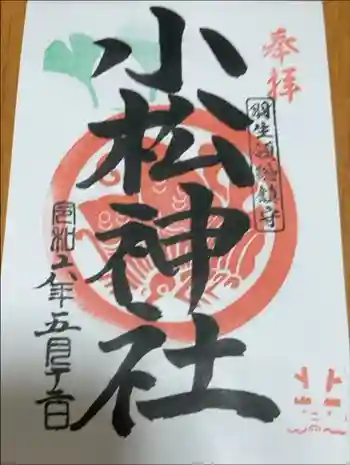 奉拝
羽生領総鎮守
小松神社
令和六年五月十二日